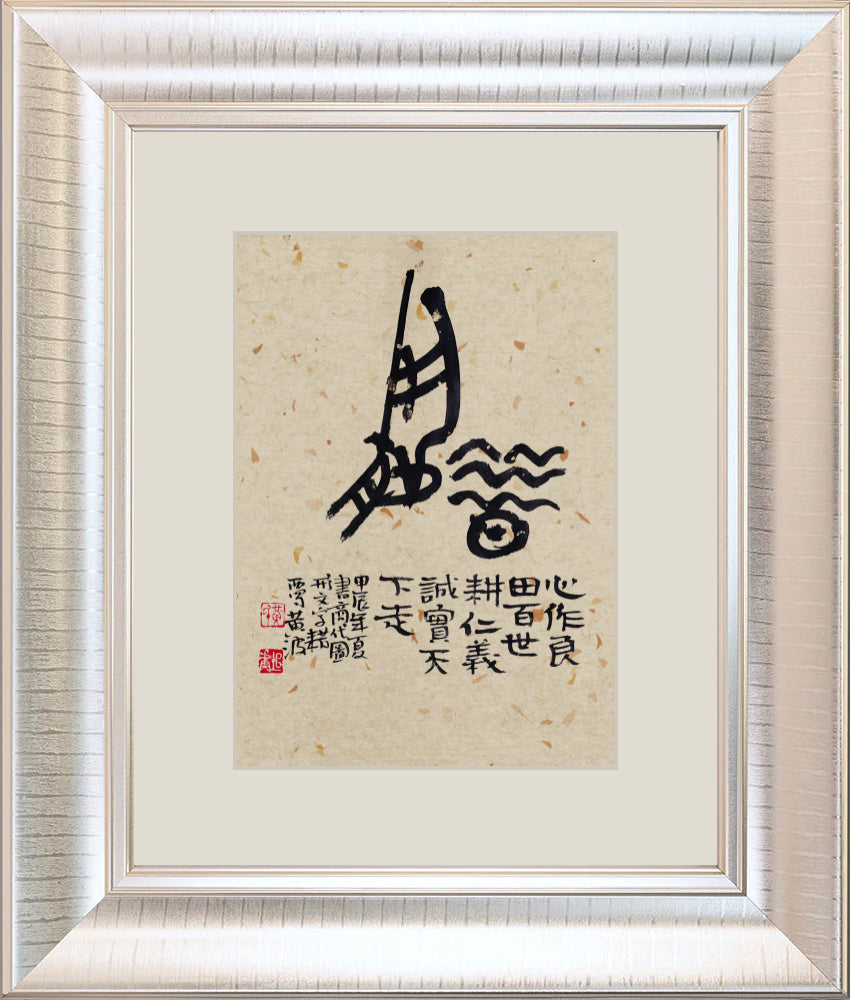 心作良
田百世
耕仁義
誠實天
下走
甲辰年夏
書商代圖
形文字耤
黄波